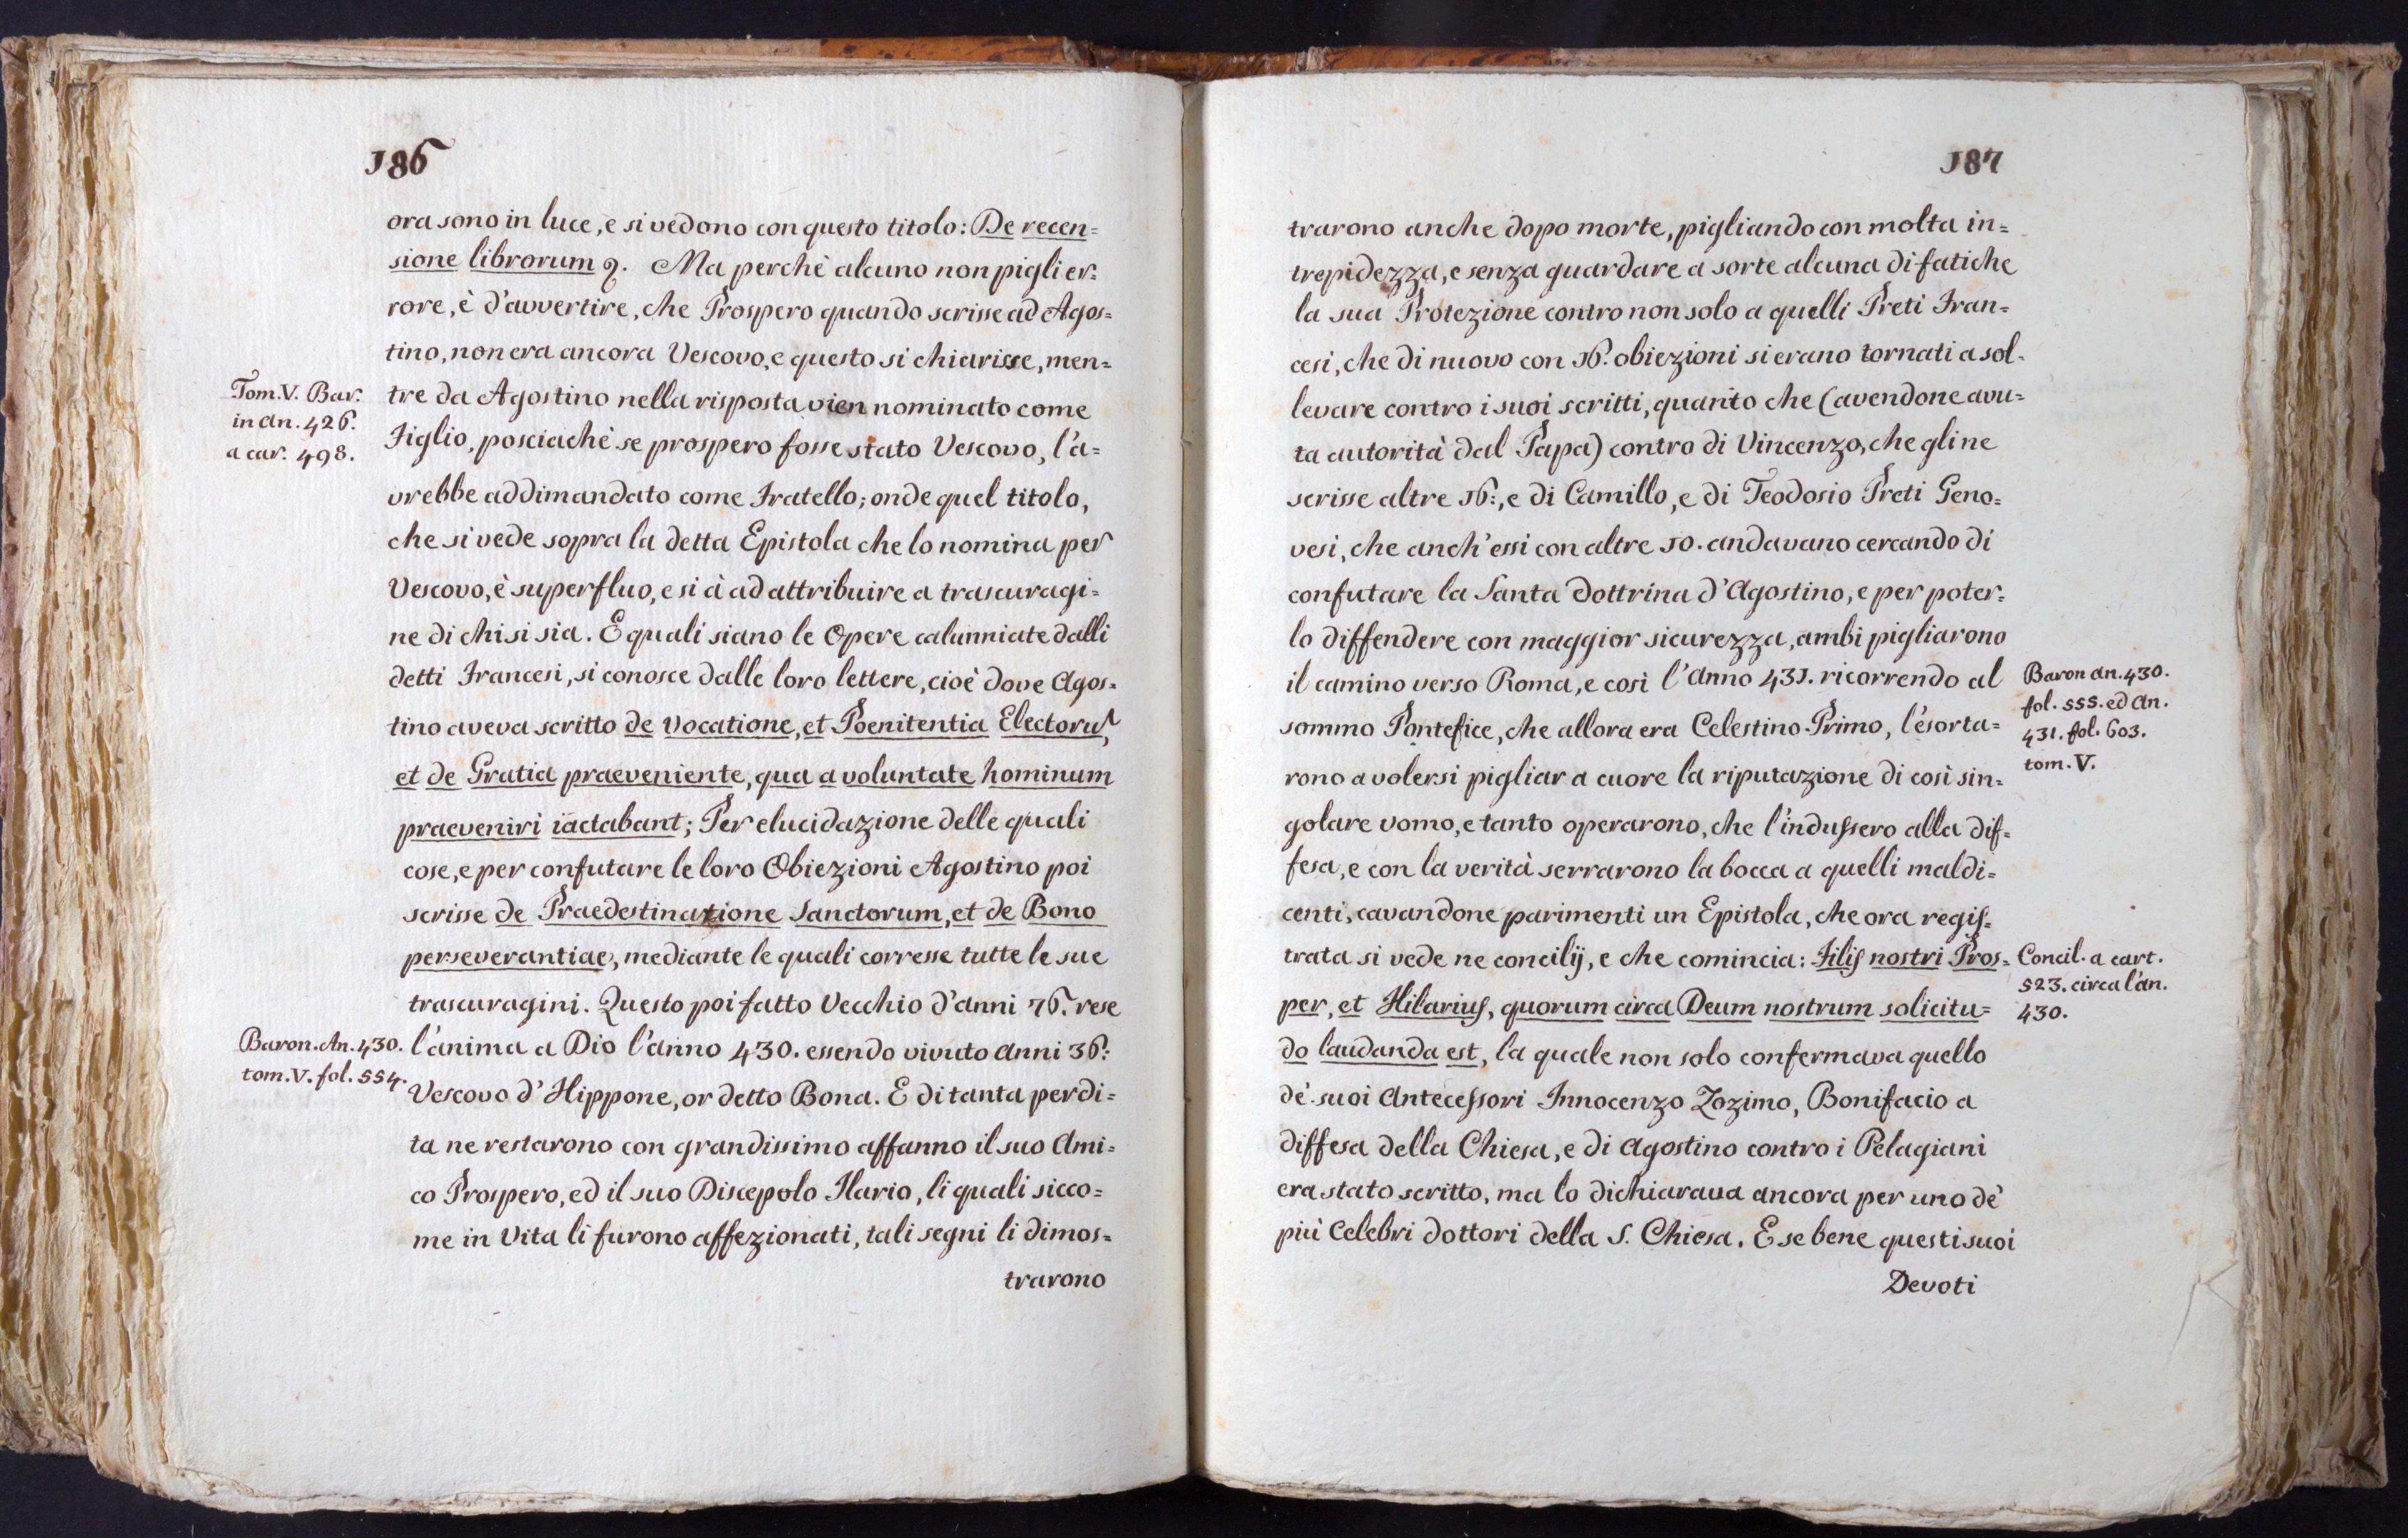 186
ora sono in luce, e si vedono con questo titolo: De recen=
sione librorum 2. Ma perchè alcuno non pigli er=
rore, è d'avvertire, che Prospero quando scrisse ad Agos=
tino, non era ancora Vescovo, e questo si chiarisce, men=
Tom. V. Bar.
in An. 426.
a car. 498.
tre da Agostino nella risposta vien nominato come
Figlio, posciachè se prospero fosse stato Vescovo, l'a=
vrebbe addimandato come Fratello; onde quel titolo,
che si vede sopra la detta Epistola che lo nomina per
Vescovo, è superfluo, e si à ad attribuire a trascuragi=
ne di chi si sia. E quali siano le Opere calunniate dalli
detti Francesi, si conosce dalle loro lettere, cioè dove Agos=
tino aveva scritto de Vocatione, et Poenitentia Electorū,
et de Gratia praeveniente, qua a voluntate hominum
praeveniri iactabant; Per elucidazione delle quali
cose, e per confutare le loro Obiezioni Agostino poi
scrisse de Praedestinatione Sanctorum, et de Bono
perseverantiae, mediante le quali corresse tutte le sue
trascuragini. Questo poi fatto Vecchio d'anni 76. rese
Baron. An. 430.
tom. V. fol. 554.
l'anima a Dio l'anno 430. essendo vivuto Anni 36:
Vescovo d'Hippone, or detto Bona. E di tanta perdi=
ta ne restarono con grandissimo affanno il suo Ami=
co Prospero, ed il suo Discepolo Ilario, li quali sicco=
me in Vita li furono affezionati, tali segni li dimos=
trarono
187
trarono anche dopo morte, pigliando con molta in=
trepidezza, e senza guardare a sorte alcuna di fatiche
la sua Protezione contro non solo a quelli Preti Fran=
cesi, che di nuovo con 16. obiezioni si erano tornati a sol=
levare contro i suoi scritti, quanto che (avendone avu=
ta autorità dal Papa) contro di Vincenzo, che gli ne
scrisse altre 16:, e di Camillo, e di Teodosio Preti Geno=
vesi, che anch'essi con altre 10. andavano cercando di
confutare la Santa dottrina d'Agostino, e per poter=
lo diffendere con maggior sicurezza, ambi pigliarono
il camino verso Roma, e così l'Anno 431. ricorrendo al
Baron an. 430.
fol. 555. ed An.
431. fol. 603.
tom. V.
sommo Pontefice, che allora era Celestino Primo, l'esorta=
rono a volersi pigliar a cuore la riputazione di così sin=
golare vomo, e tanto operarono, che l'indussero alla dif=
fesa, e con la verità serrarono la bocca a quelli maldi=
centi, cavandone parimenti un Epistola, che ora regis=
trata si vede ne concilij, e che comincia: Filis nostri Pros=
Concil. a cart.
523. circa l'an.
430.
per, et Hilarius, quorum circa Deum nostrum solicitu=
do laudanda est, la quale non solo confermava quello
de' suoi Antecessori Innocenzo Zozimo, Bonifacio a
diffesa della Chiesa, e di Agostino contro i Pelagiani
era stato scritto, ma lo dichiaraua ancora per uno de'
più Celebri dottori della S. Chiesa. E se bene questi suoi
Devoti